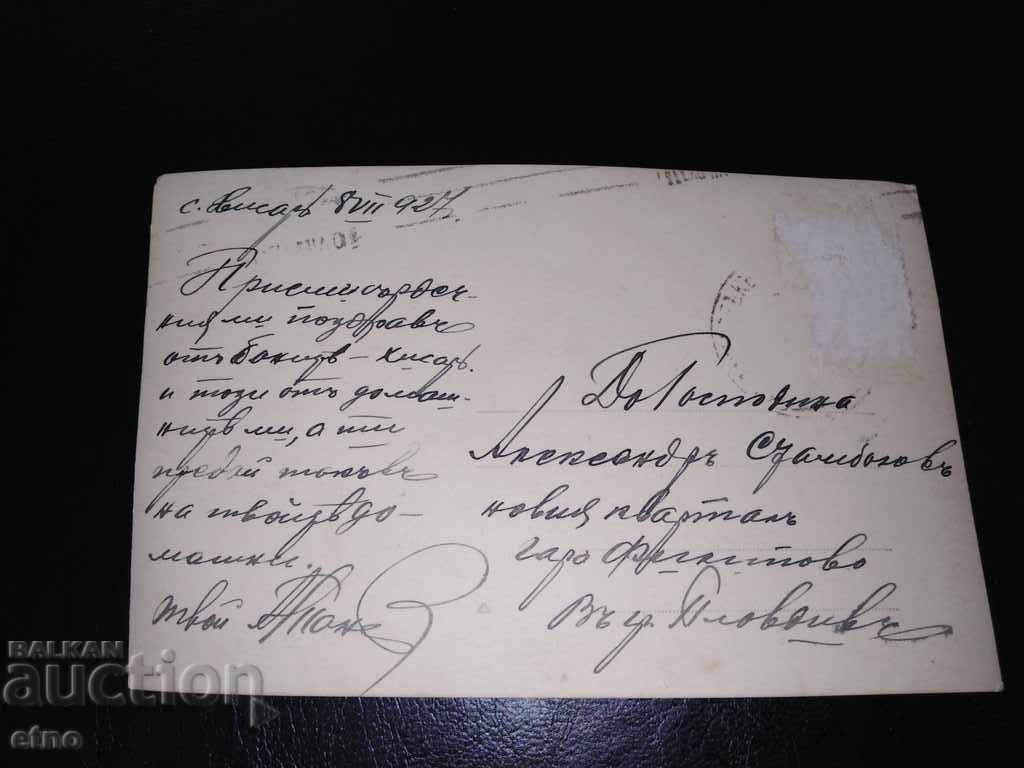 с. Хисарь 8 VII 927.
Приеми сърдеч-
ния ми поздравъ
отъ Банитѣ - Хисарь.
и този отъ домаш-
нитѣ ми, а ти
предай такъвъ
на твоитѣ до-
машни.
твой
До Господина
Александръ Стамболовъ
новия кварталъ
гара Филипово
Въ гр. Пловдивъ
BALKAN
auction
etno